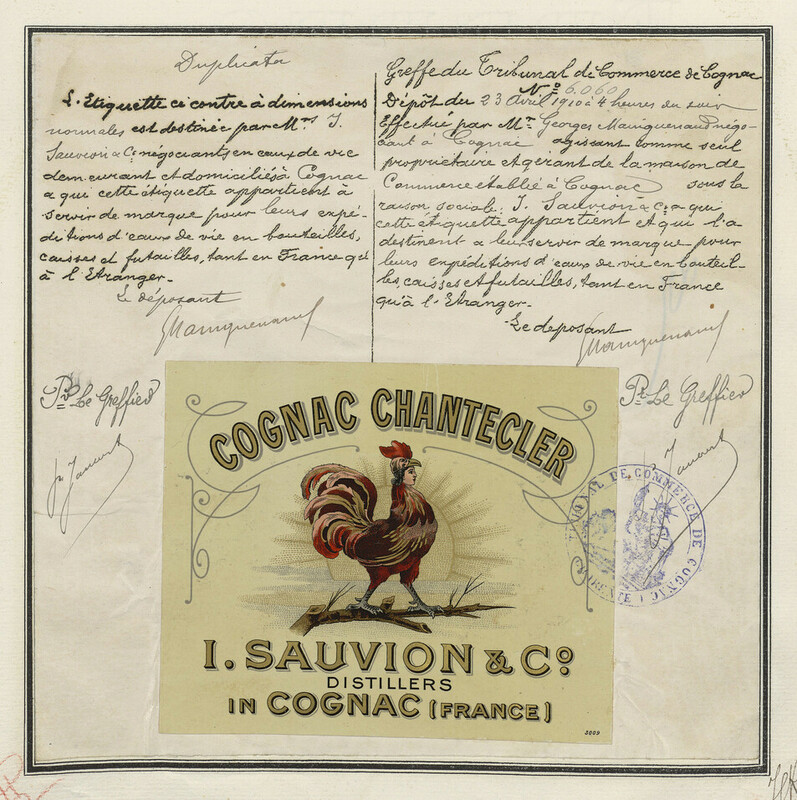 Duplicata
L'Etiquette ci contre à dimensions
normales est destinée par Mrs J.
Sauvion & Co négociants en eaux de vie
demeurant et domiciliés à Cognac
a qui cette étiquette appartient à
servir de marque pour leurs expé-
ditions d'eaux de vie en bouteilles,
caisses et futailles, tant en France qu'
à l'Etranger.
Le déposant
GManiquenaud
Pr Le Greffier
Greffe du Tribunal de Commerce de Cognac
No 6.060
Dépôt du 23 Avril 1910 à 4 heures du soir
Effectué par Mr Georges Maniquenaud négo-
ciant à Cognac agissant comme seul
propriétaire et gérant de la maison de
Commerce établie à Cognac sous la
raison sociale: J. Sauvion & Co a qui
cette étiquette appartient et qui l'a
destinent a leur servir de marque pour
leurs expéditions d'eaux de vie en bouteil-
les, caisses et futailles, tant en France
qu'à l'Etranger.
Le deposant
GManiquenaud
Pr Le Greffier
COGNAC CHANTECLER
I. SAUVION & Co
DISTILLERS
IN COGNAC (FRANCE)
3009
TRIBUNAL DE COMMERCE DE COGNAC
(CHARENTE)